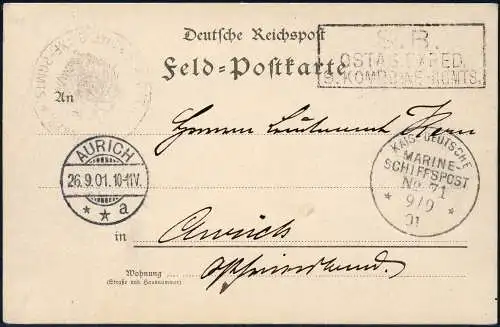 Deutsche Reichspost
Feld-Postkarte
S. B.
OSTAS. EXPED.
9. KOMP.
An
Herrn Leutnant
AURICH
26.9.01.10-11V.
* * a
KAIS. DEUTSCHE
MARINE-
SCHIFFSPOST
No 71
9/9
01
in Aurich
Ostfriesland.
Wohnung
(Straße und Hausnummer)